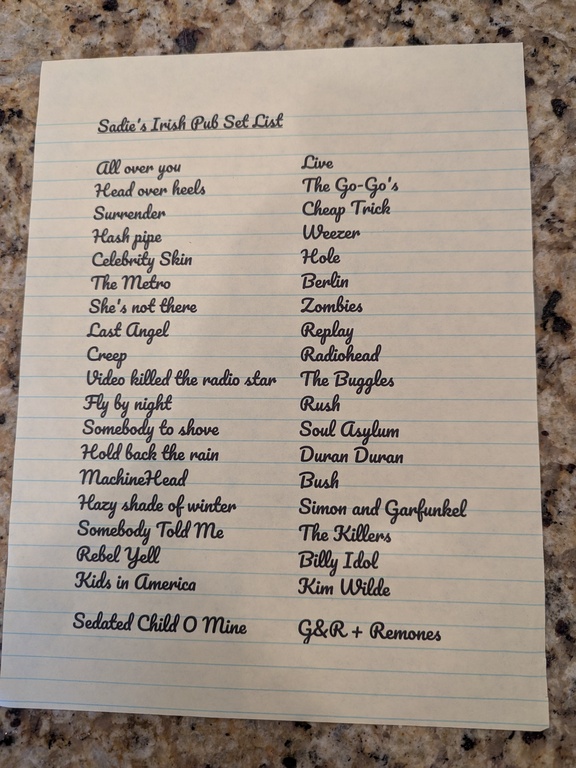 Sadie's Irish Pub Set List
All over you Live
Head over heels The Go-Go's
Surrender Cheap Trick
Hash pipe Weezer
Celebrity Skin Hole
The Metro Berlin
She's not there Zombies
Last Angel Replay
Creep Radiohead
Video killed the radio star The Buggles
Fly by night Rush
Somebody to shove Soul Asylum
Hold back the rain Duran Duran
MachineHead Bush
Hazy shade of winter Simon and Garfunkel
Somebody Told Me The Killers
Rebel Yell Billy Idol
Kids in America Kim Wilde
Sedated Child O Mine G&R + Remones